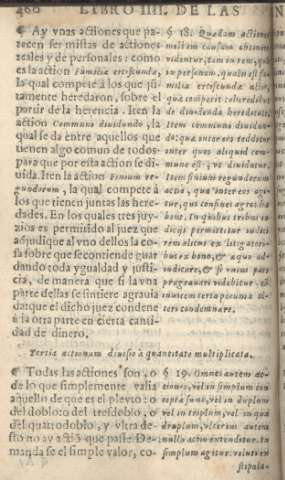 LIBRO IIII. DE LAS
¶ Ay vnas actiones que pa-
recen ser mistas de actiones
reales y de personales: como
es la action Familiæ erciscundæ,
la qual compete à los que ju-
tamente heredaron, sobre el
partir de la herencia. Iten la
action Communi diuidundo, la
qual se da entre aquellos que
tienen algo comun de todos
para que por esta action se di-
uida. Iten la action Finium re-
gundorum, la qual compete à
los que tienen juntas las here-
dades. En los quales tres juy-
zios es permitido al juez que
adjudique al vno dellos la co-
sa sobre que se contiende guar
dando toda ygualdad y justi-
cia, de manera que si la vna
parte dellas se sintiere agrauia
da que el dicho juez condene
à la otra parte en cierta canti-
dad de dinero.
§ 18. Quædam actiones
mixtam causam obtinere
videntur, tam in rem, quàm
in personam, qualis est fa-
miliæ erciscundæ actio,
quæ competit coheredibus
de diuidenda hereditate,
Item communi diuidun-
do: quæ inter eos redditur
inter quos aliquid com-
mune est, vt diuidatur.
Item finium regundorum
actio, quæ inter eos agi-
tur, qui confines agros ha-
bent. In quibus tribus iu-
dicijs permittitur iudici
rem alicui ex litigatori-
bus ex bono, & æquo ad-
iudicare, & si vnius pars
prægrauari videbitur, eũ
inuicem certa pecunia al-
teri condemnare.
Tertia actionum diuisio à quantitate multiplicata.
¶ Todas las actiones son, o
de lo que simplemente valia
aquello de que es el pleyto: o
del doblo: o del tresdoblo, o
del quattrodoblo, y vltra de
sto no ay actiõ que passe. De-
manda se el simple valor, co-
§ 19. Omnes autem ac-
tiones, vel in simplum con
ceptæ sunt, vel in duplum
vel in triplum, vel in qua
druplum, vlterius autem
nulla actio extenditur. In
simplum agitur: veluti ex
stipula-